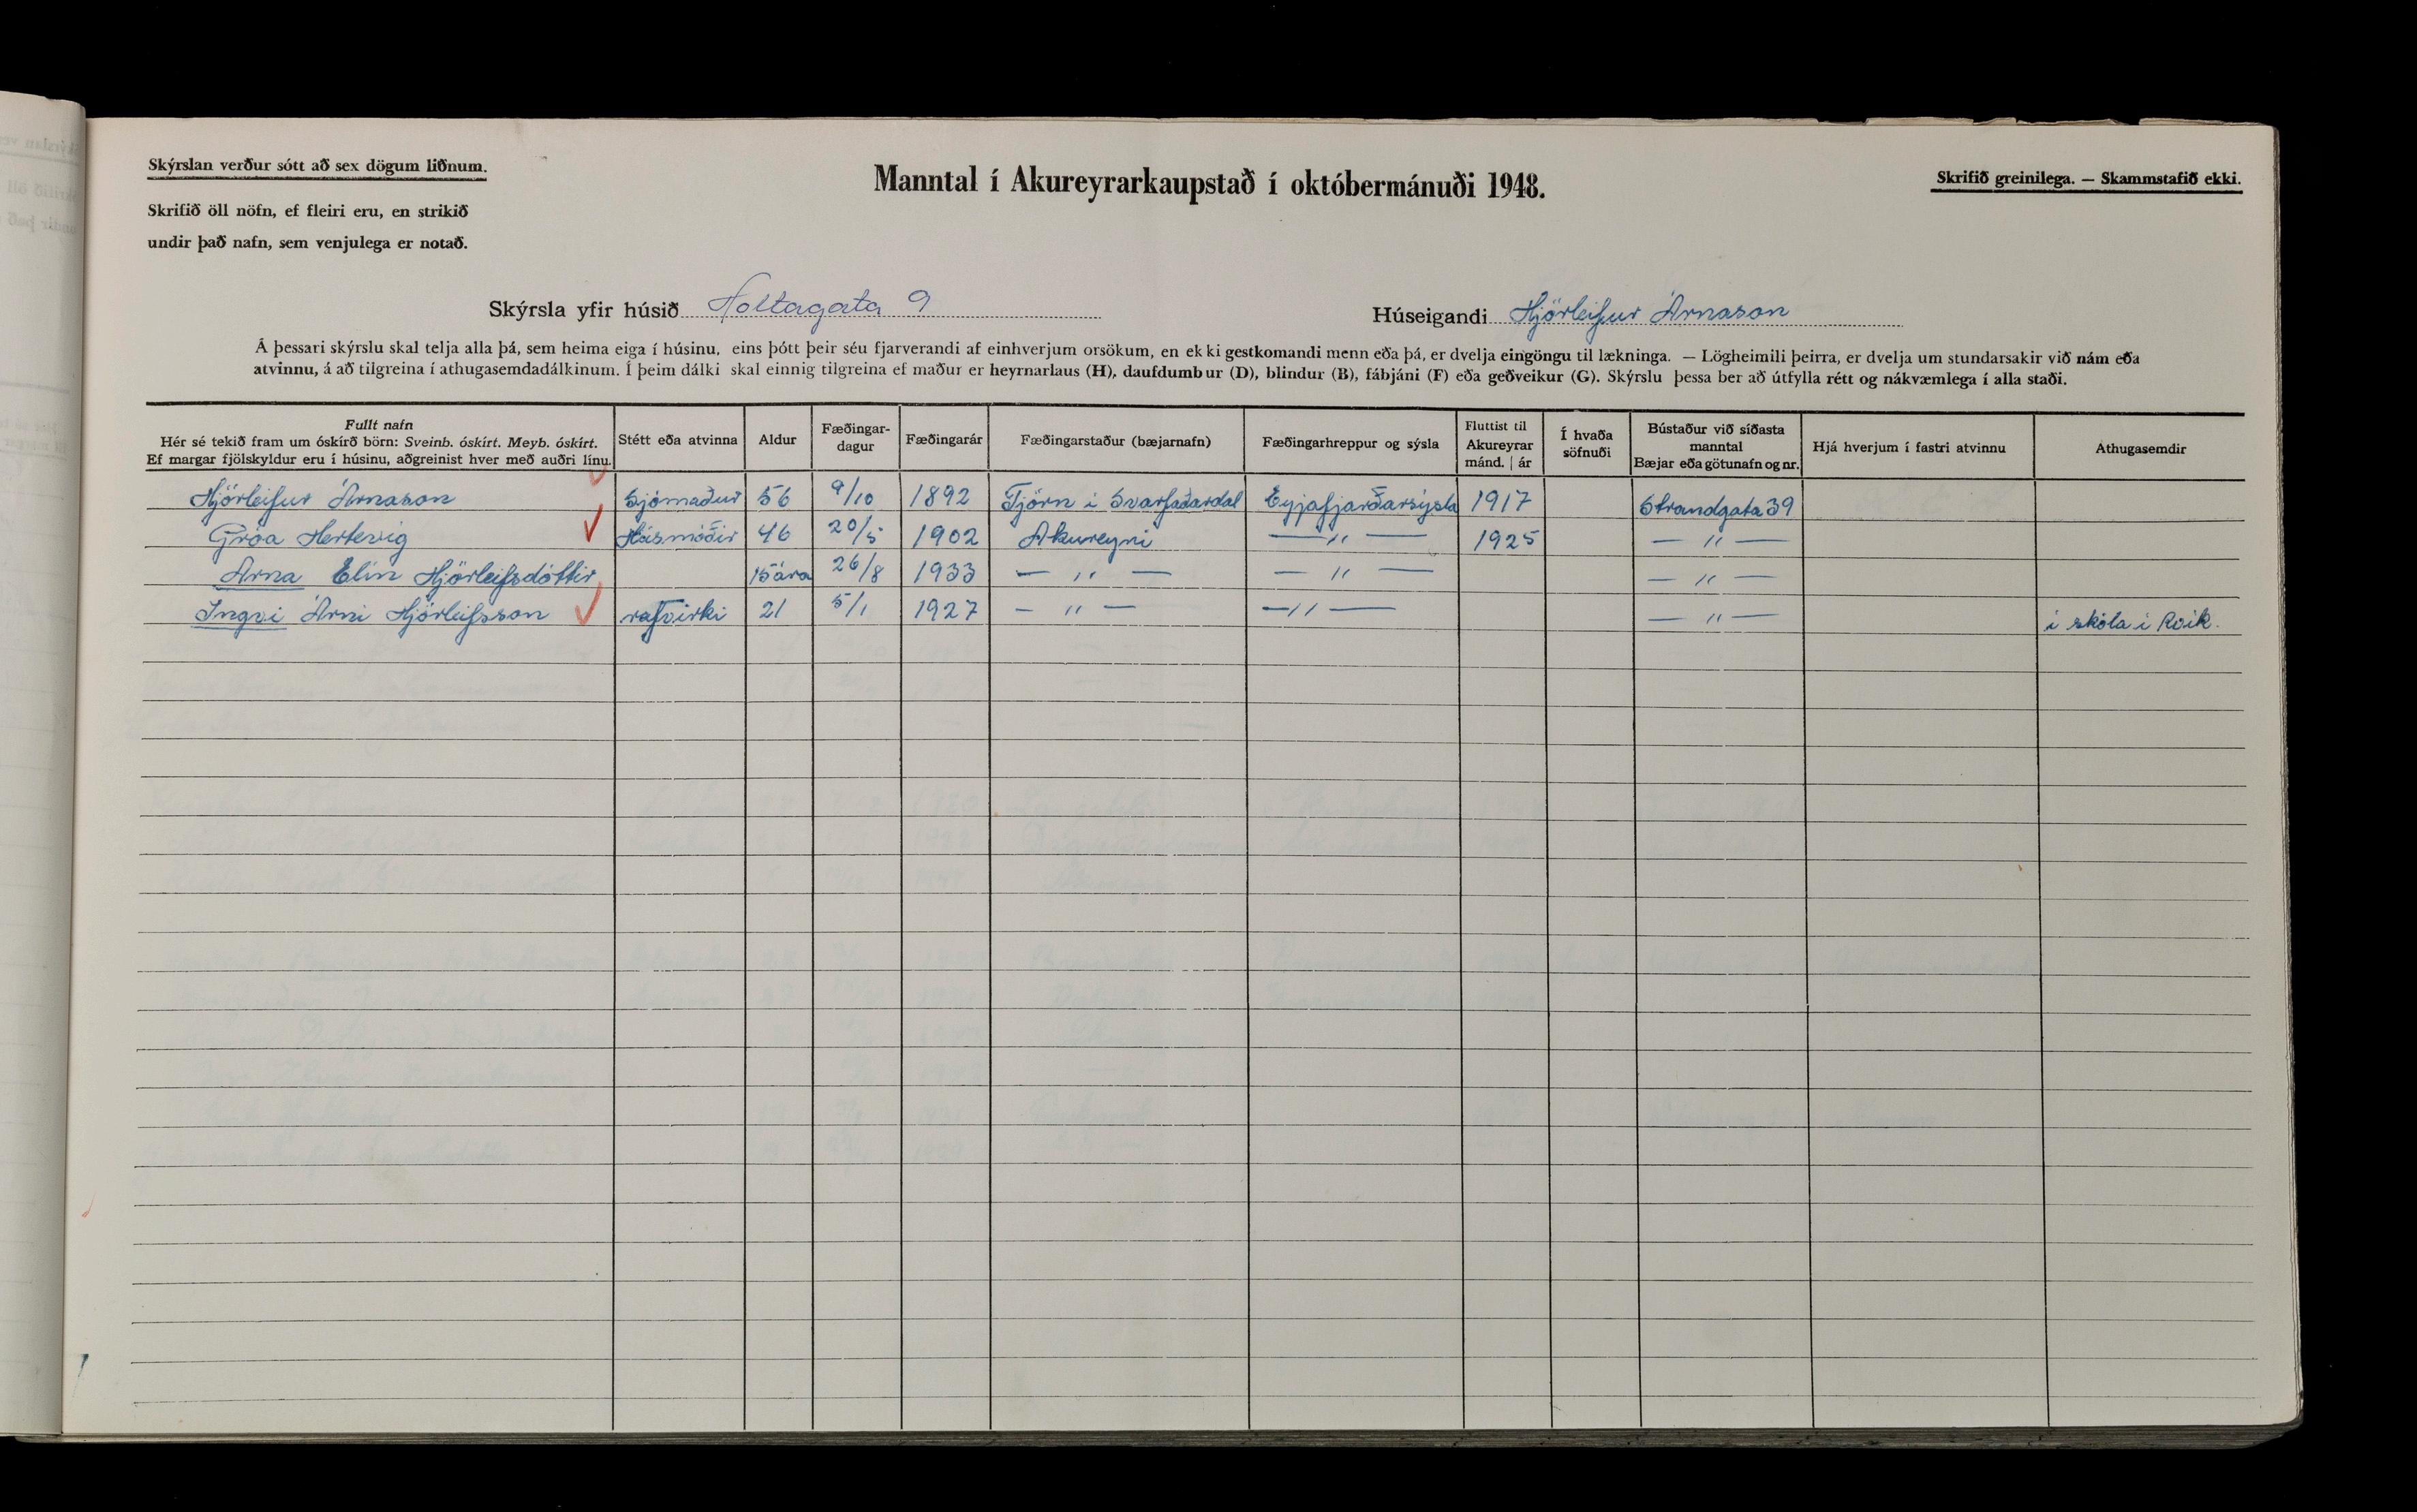 Skýrslan verður sótt að sex dögum liðnum.
Skrifið öll nöfn, ef fleiri eru, en strikið
undir það nafn, sem venjulega er notað.
Manntal í Akureyrarkaupstað í októbermánuði 1948.
Skrifið greinilega. — Skammstafið ekki.
Skýrsla yfir húsið Holtagata 9
Húseigandi Hjörleifur Árnason
Á þessari skýrslu skal telja alla þá, sem heima eiga í húsinu, eins þótt þeir séu fjarverandi af einhverjum orsökum, en ekki gestkomandi menn eða þá, er dvelja eingöngu til lækninga. — Lögheimili þeirra, er dvelja um stundarsakir við nám eða
atvinnu, á að tilgreina í athugasemdadálkinum. Í þeim dálki skal einnig tilgreina ef maður er heyrnarlaus (H), daufdumbur (D), blindur (B), fábjáni (F) eða geðveikur (G). Skýrslu þessa ber að útfylla rétt og nákvæmlega í alla staði.
Fullt nafn
Hér sé tekið fram um óskírð börn: Sveinb. óskírt. Meyb. óskírt.
Ef margar fjölskyldur eru í húsinu, aðgreinist hver með auðri línu.
Stétt eða atvinna
Aldur
Fæðingar-
dagur
Fæðingarár
Fæðingarstaður (bæjarnafn)
Fæðingarhreppur og sýsla
Fluttist til
Akureyrar
mánd. | ár
Í hvaða
söfnuði
Bústaður við síðasta
manntal
Bæjar eða götunafn og nr.
Hjá hverjum í fastri atvinnu
Athugasemdir
Hjörleifur Árnason Sjómaður 56 9/10 1892 Tjörn í Svarfaðardal Eyjafjarðarsýsla 1917 Strandgata 39
Gróa Hertervig Húsmóðir 46 20/5 1902 Akureyri — " — 1925 — " —
Arna Elín Hjörleifsdóttir 15 ára 26/8 1933 — " — — " — — " —
Ingvi Árni Hjörleifsson rafvirki 21 5/1 1927 — " — — " — — " — í skóla í Rvík.